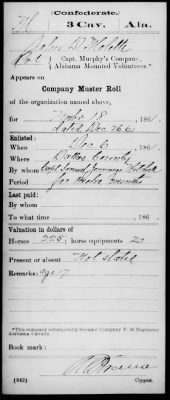 (Confederate.)
H 3 Cav. Ala.
John D
Pvt { Capt. Murphy's Company,
Alabama Mounted Volunteers.*
Appears on
Company Muster Roll
of the organization named above,
for 18 186 .
dated Dec 26 61
Enlisted:
When Dec 6 186 .
Where Dallas County
By whom Capt Samuel Jennings
Period for twelve months
Last paid:
By whom
To what time 186 .
Valuation in dollars of
Horses 225; horse equipments 20
Present or absent Not stated
Remarks: age 17
*This company subsequently became Company F, 3d Regiment
Alabama Cavalry.
Book mark:
(642) Copyist.